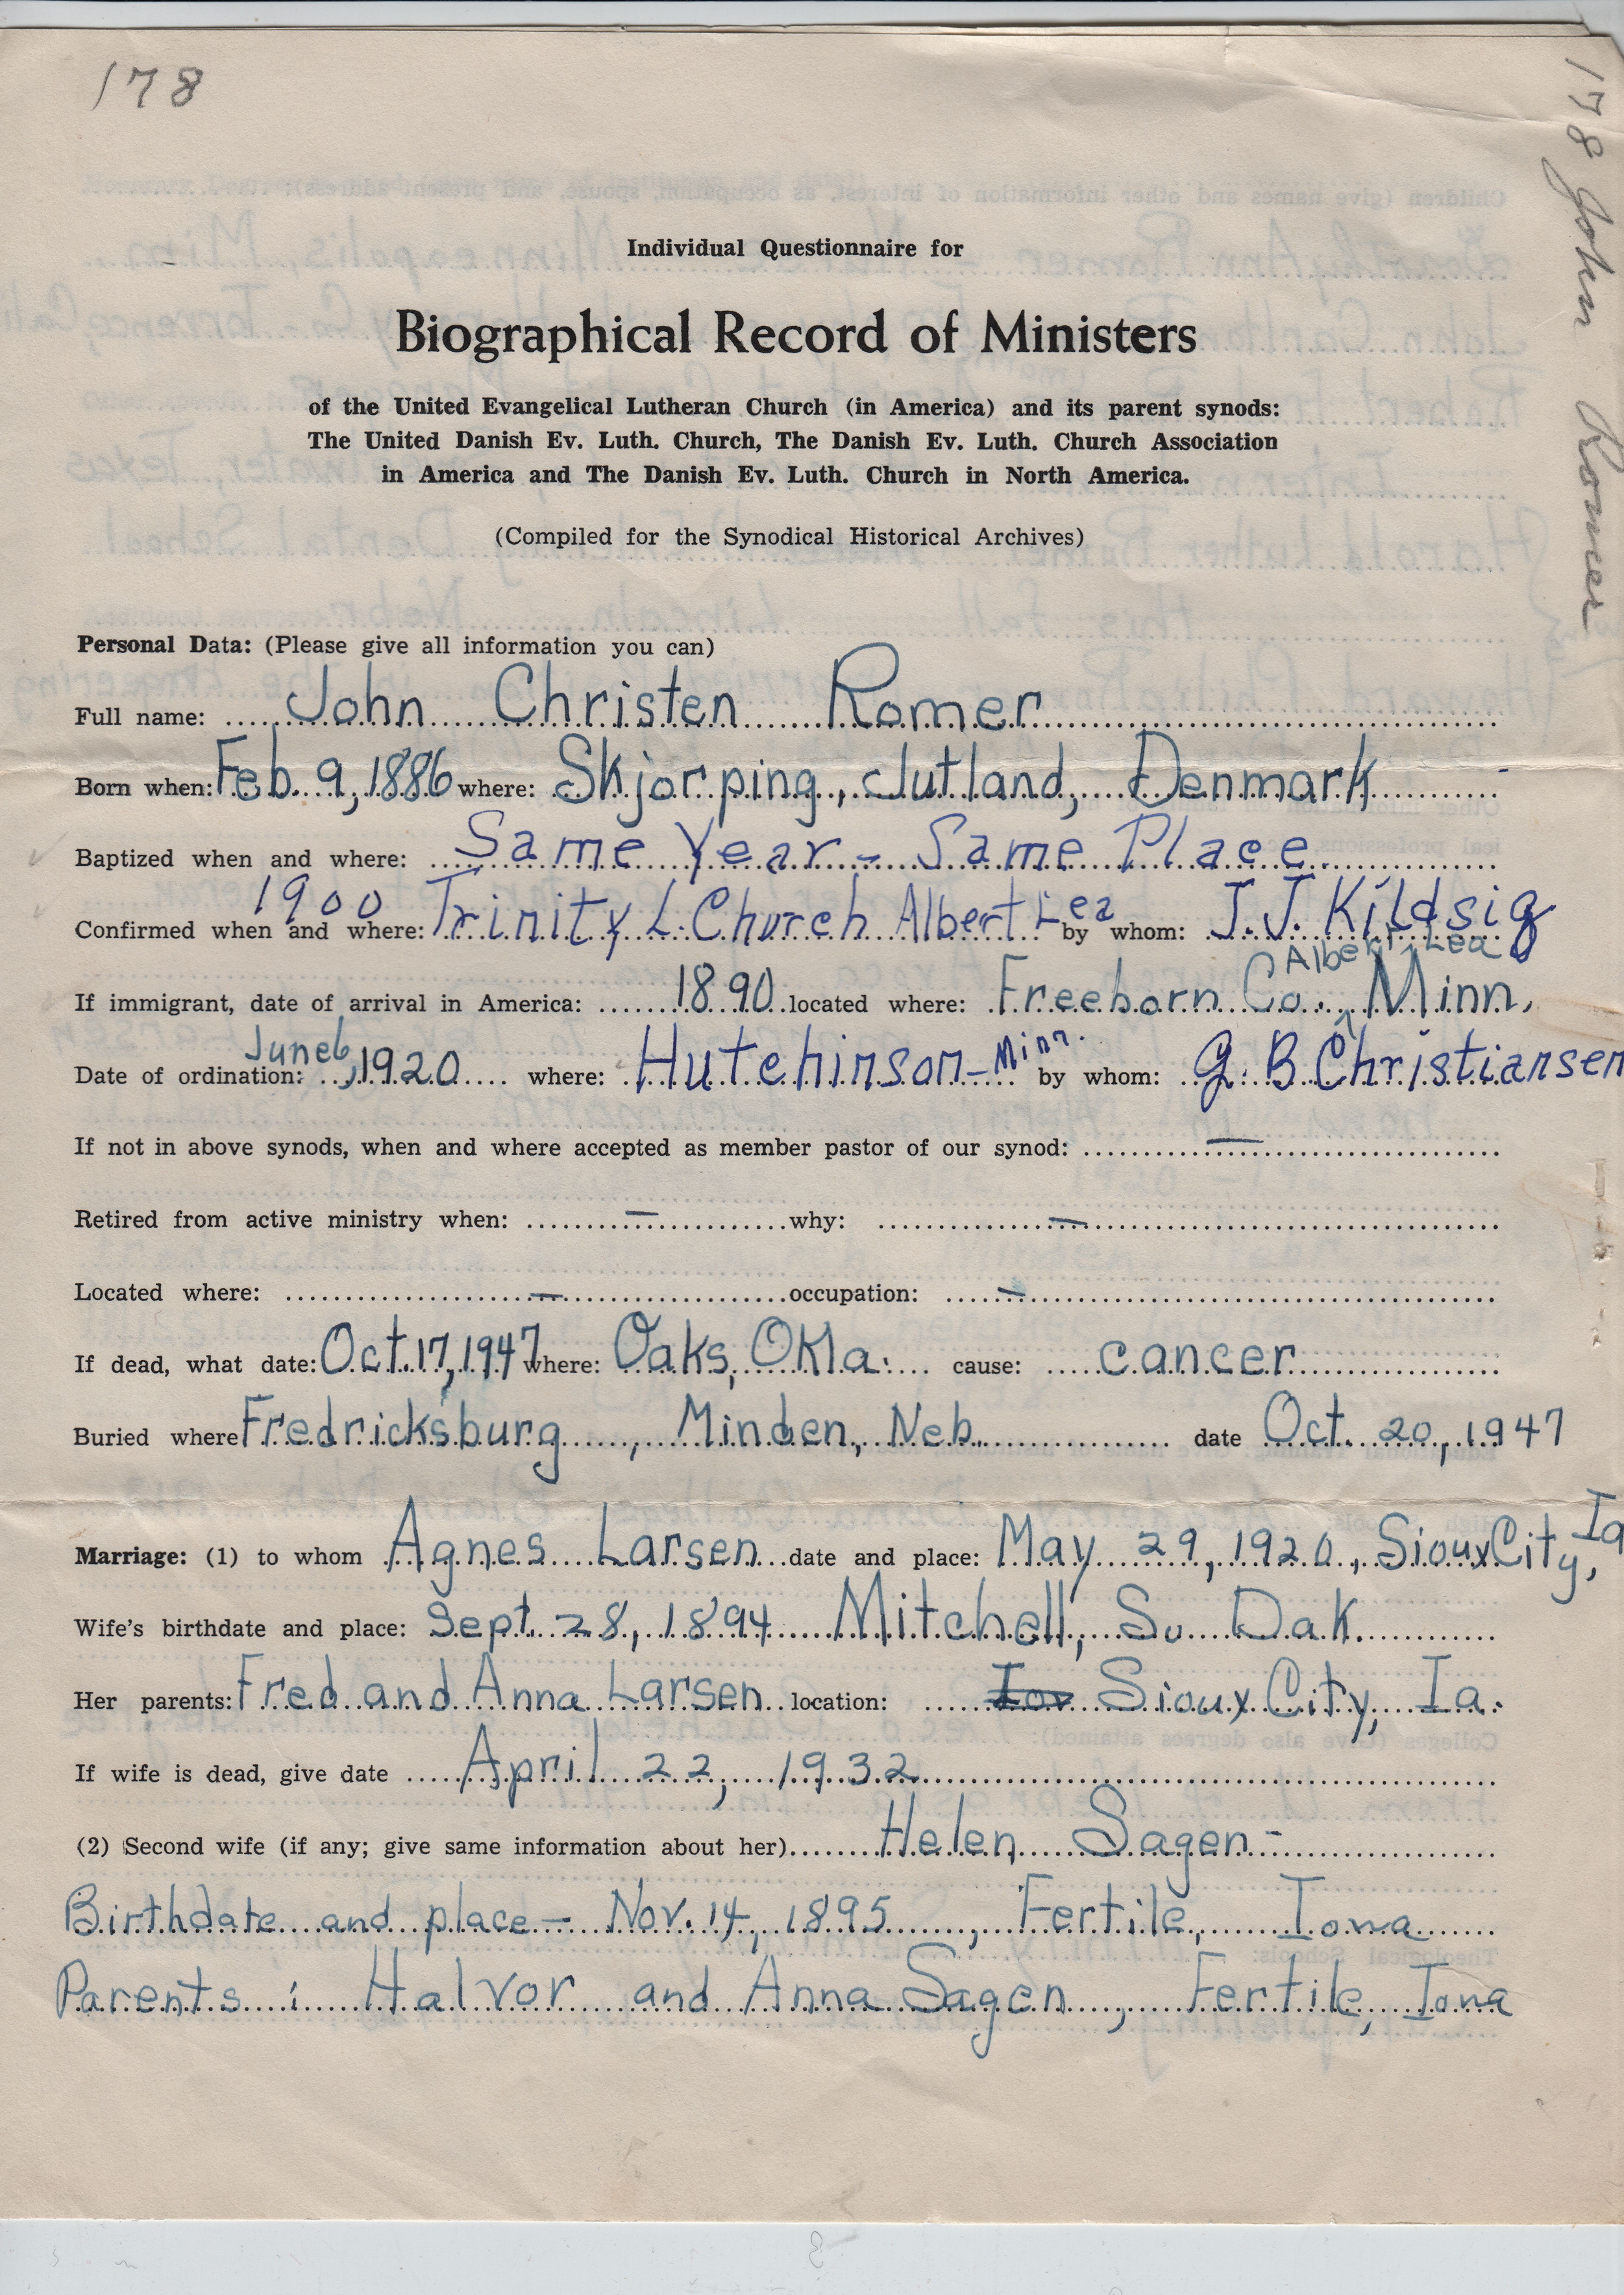 178
178 John Romer
Individual Questionnaire for
Biographical Record of Ministers
of the United Evangelical Lutheran Church (in America) and its parent synods:
The United Danish Ev. Luth. Church, The Danish Ev. Luth. Church Association
in America and The Danish Ev. Luth. Church in North America.
(Compiled for the Synodical Historical Archives)
Personal Data: (Please give all information you can)
Full name: John Christen Romer
Born when: Feb. 9, 1886 where: Skjorping, Jutland, Denmark
Baptized when and where: Same Year - Same Place
Confirmed when and where: 1900 Trinity L. Church Albert Lea by whom: J. J. Kildsig
If immigrant, date of arrival in America: 1890 located where: Freeborn Co. Albert Lea, Minn.
Date of ordination: June 6, 1920 where: Hutchinson - Minn. by whom: G. B. Christiansen
If not in above synods, when and where accepted as member pastor of our synod: —
Retired from active ministry when: — why: —
Located where: — occupation: —
If dead, what date: Oct. 17, 1947 where: Oaks, Okla. cause: cancer
Buried where Fredricksburg, Minden, Neb. date Oct. 20, 1947
Marriage: (1) to whom Agnes Larsen date and place: May 29, 1920, Sioux City, Ia
Wife's birthdate and place: Sept. 28, 1894 Mitchell, So Dak.
Her parents: Fred and Anna Larsen location: Sioux City, Ia.
If wife is dead, give date April 22, 1932
(2) Second wife (if any; give same information about her) Helen Sagen -
Birthdate and place - Nov. 14, 1895, Fertile, Iowa
Parents: Halvor and Anna Sagen, Fertile, Iowa